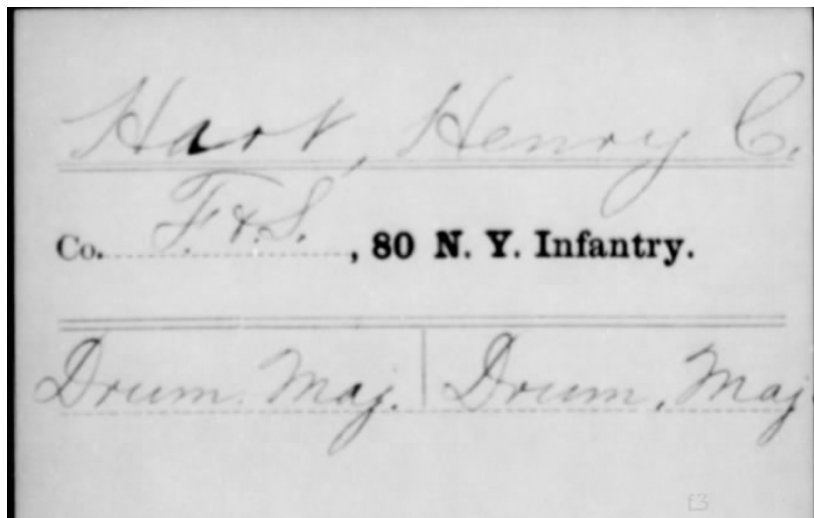 Hart, Henry C.
Co. F. & S. , 80 N. Y. Infantry.
Drum. Maj. | Drum. Maj.